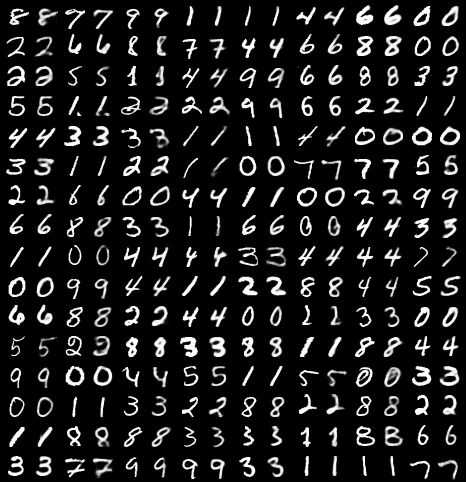 8 8 7 7 9 9 1 1 1 1 4 4 6 6 0 0
2 2 6 6 8 8 7 7 4 4 6 6 8 8 0 0
2 2 5 5 1 1 4 4 9 9 6 6 8 8 3 3
5 5 1 1 2 2 2 2 9 9 6 6 2 2 1 1
4 4 3 3 3 3 1 1 1 1 4 4 0 0 0 0
3 3 1 1 2 2 1 1 0 0 7 7 7 7 5 5
2 2 6 6 0 0 4 4 1 1 0 0 2 2 9 9
6 6 8 8 3 3 1 1 6 6 0 0 4 4 3 3
1 1 0 0 4 4 4 4 3 3 4 4 4 4 7 7
0 0 9 9 4 4 1 1 2 2 8 8 4 4 5 5
6 6 8 8 2 2 4 4 0 0 1 1 3 3 0 0
5 5 2 2 8 8 3 3 8 8 1 1 8 8 4 4
9 9 0 0 4 4 5 5 1 1 5 5 0 0 3 3
0 0 1 1 3 3 2 2 8 8 2 2 8 8 2 2
1 1 8 8 8 8 3 3 3 3 1 1 8 8 6 6
3 3 7 7 9 9 9 9 3 3 1 1 1 1 7 7